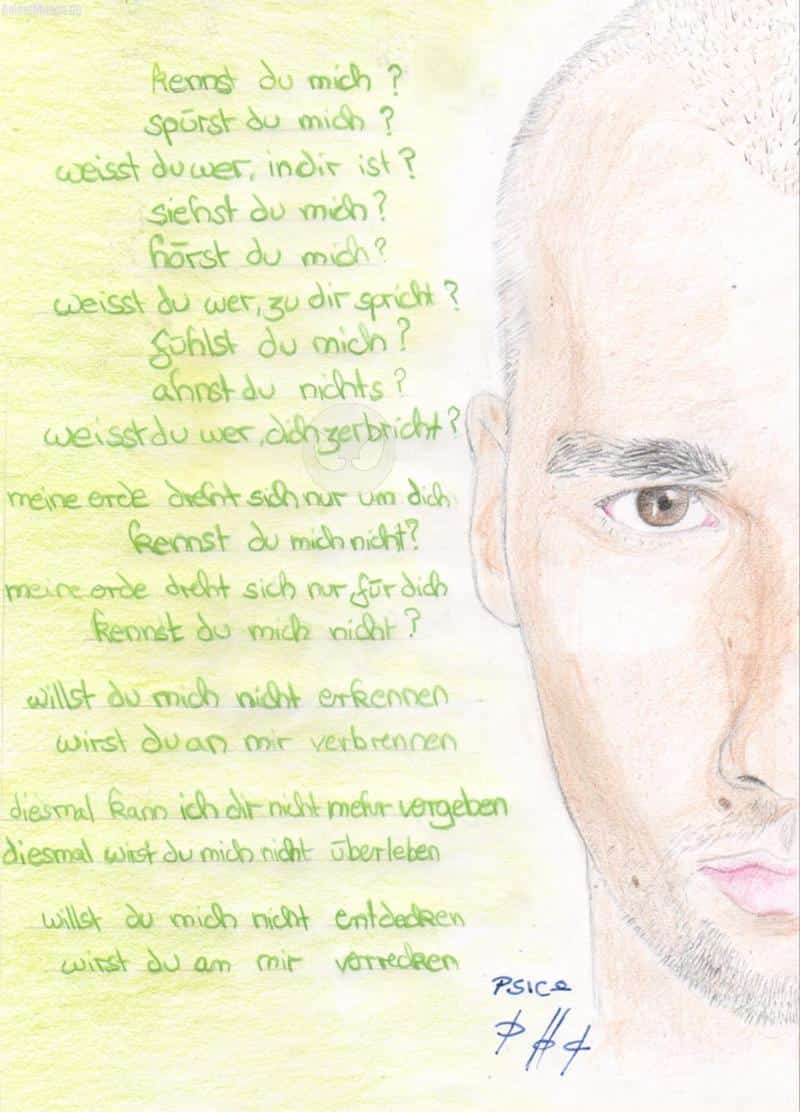 kennst du mich?
spürst du mich?
weisst du wer, in dir ist?
siehst du mich?
hörst du mich?
weisst du wer, zu dir spricht?
fühlst du mich?
ahnst du nichts?
weisst du wer, dich zerbricht?
meine erde dreht sich nur um dich
kennst du mich nicht?
meine erde dreht sich nur für dich
kennst du mich nicht?
willst du mich nicht erkennen
wirst du an mir verbrennen
diesmal kann ich dir nicht mehr vergeben
diesmal wirst du mich nicht überleben
willst du mich nicht entdecken
wirst du an mir verrecken
PSICE